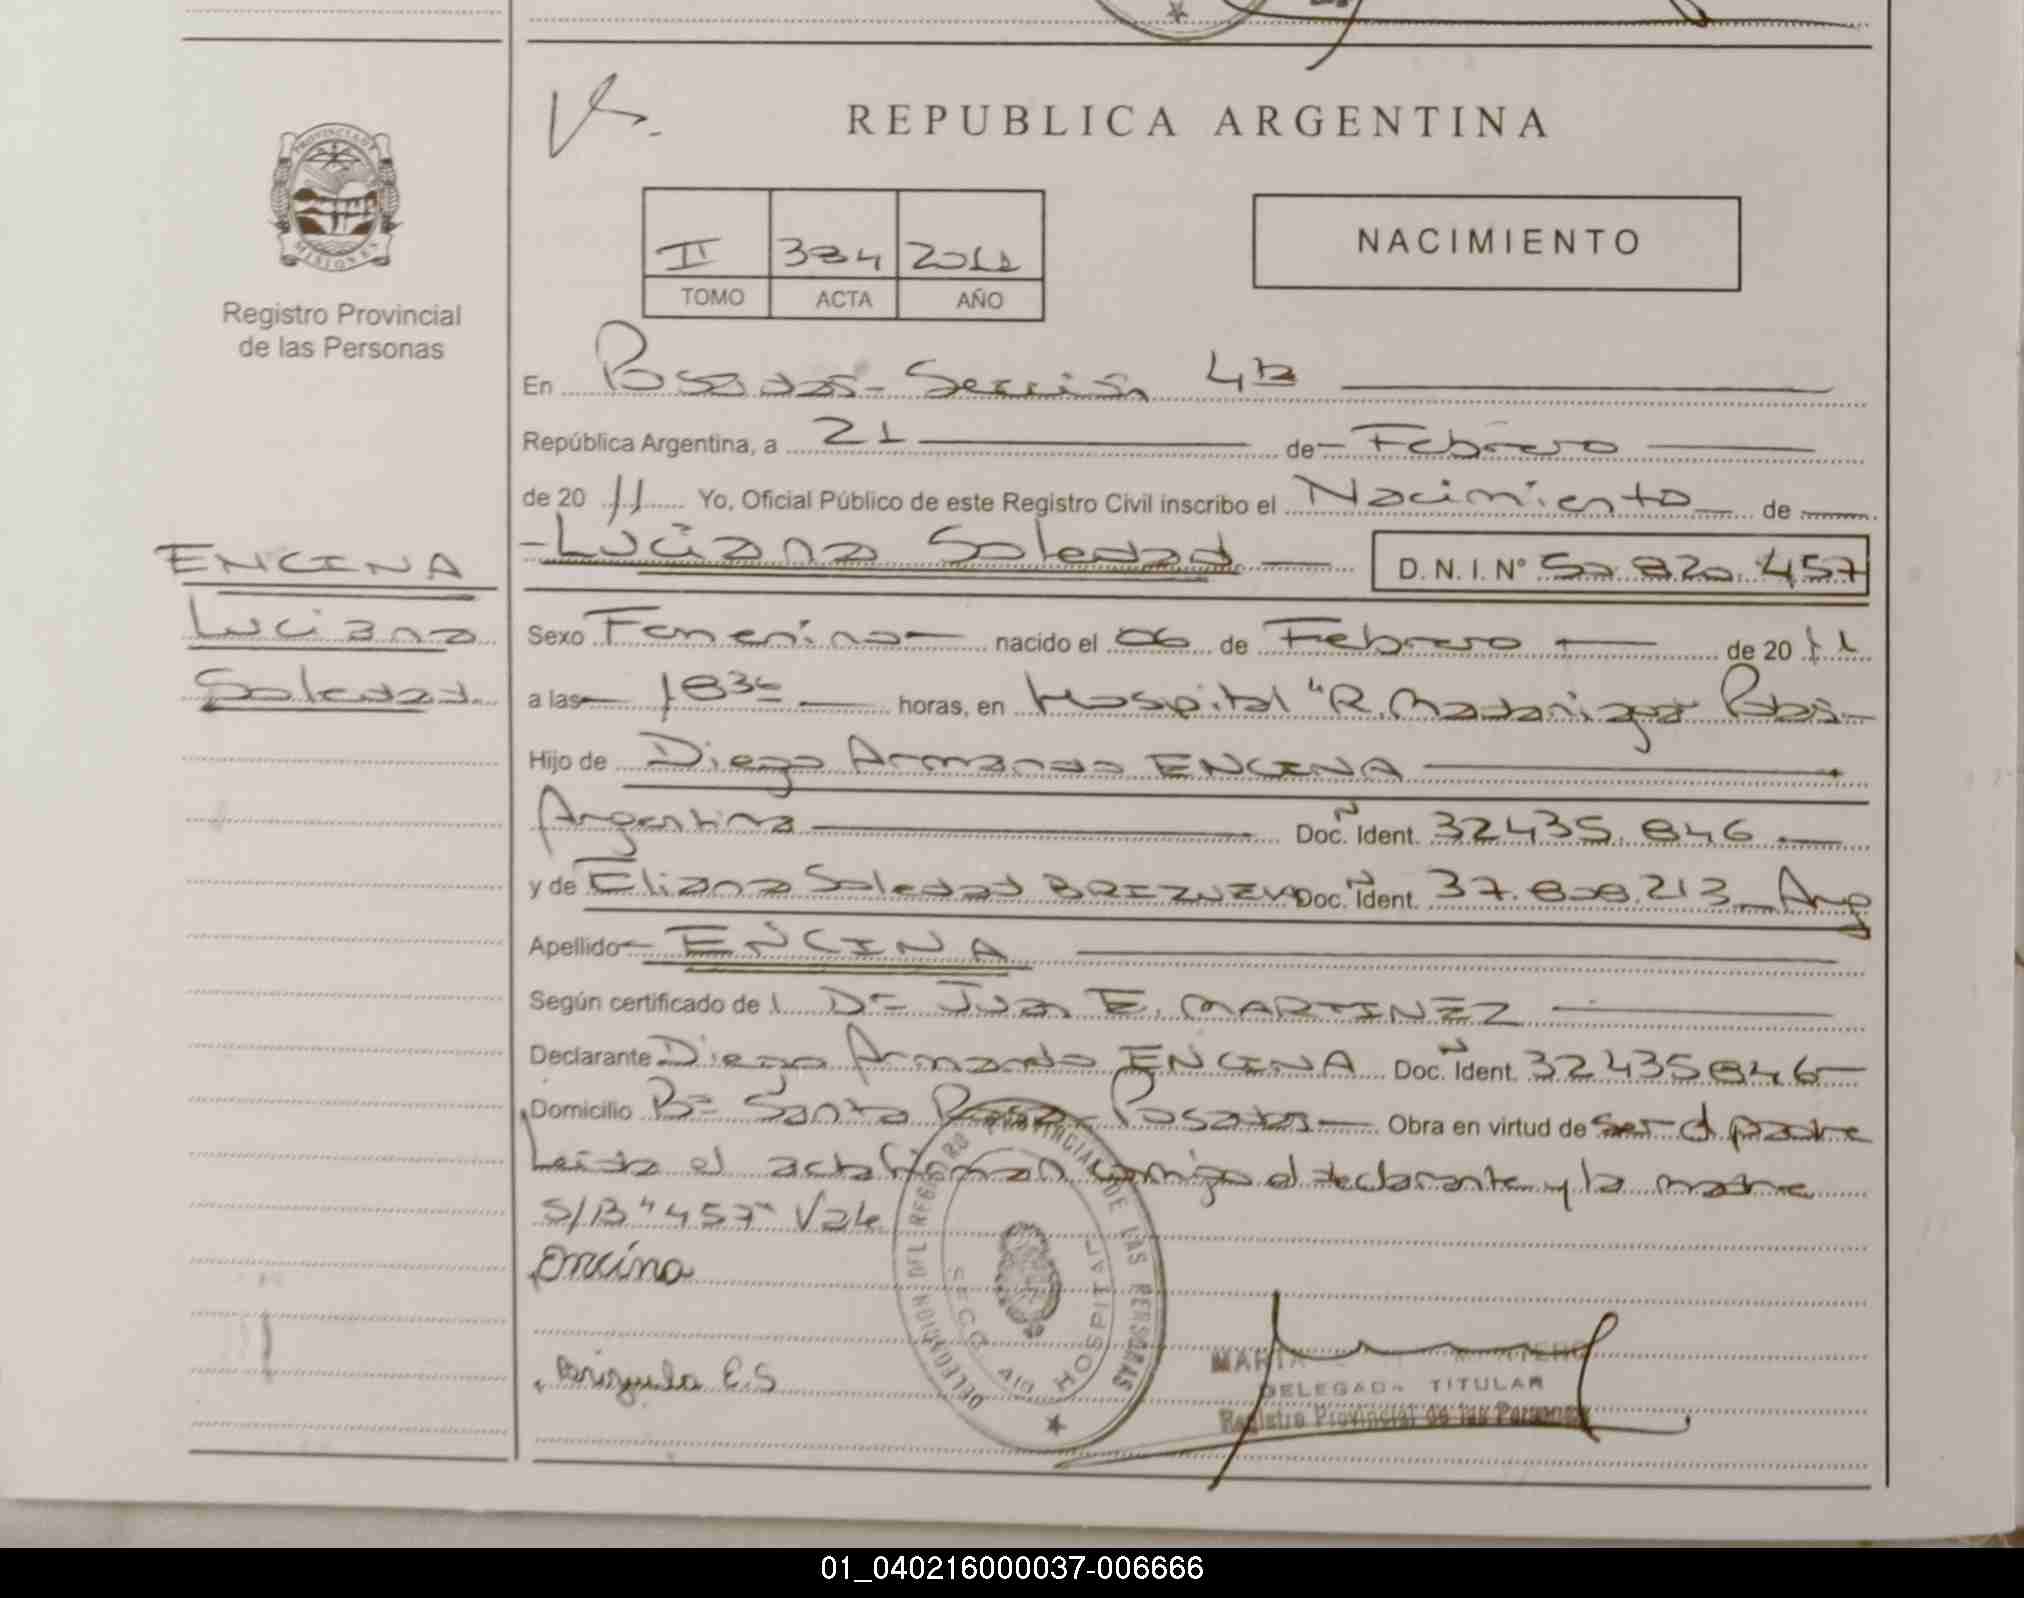 REPUBLICA ARGENTINA
PROVINCIA DE
MISIONES
Registro Provincial
de las Personas
II 384 2011
TOMO ACTA AÑO
NACIMIENTO
En Posadas - Sección 4ta
República Argentina, a 21 de Febrero
de 20 11 Yo, Oficial Público de este Registro Civil inscribo el Nacimiento de
Luciana Soledad D.N.I. N° 50.820.457
ENCINA
Luciana
Soledad
Sexo Femenino nacido el 06 de Febrero de 20 11
a las 1830 horas, en Hospital "R. Madariaga Pdas
Hijo de Diego Armando ENCINA
Argentina Doc. Ident. 32435.846
y de Eliana Soledad BRIZUELA Doc. Ident. 37.808.213 Arg
Apellido ENCINA
Según certificado de Dr Juan E. MARTINEZ
Declarante Diego Armando ENCINA Doc. Ident. 32435846
Domicilio B° Santa Rosa - Posadas Obra en virtud de ser el padre
Leida el acta firman conmigo el declarante y la madre
S/B "457" Vale
Encina
Brizuela E.S
DELEGACION DEL REGISTRO PROVINCIAL DE LAS PERSONAS
HOSPITAL
MARIA
DELEGADA TITULAR
Registro Provincial de las Personas
01_040216000037-006666